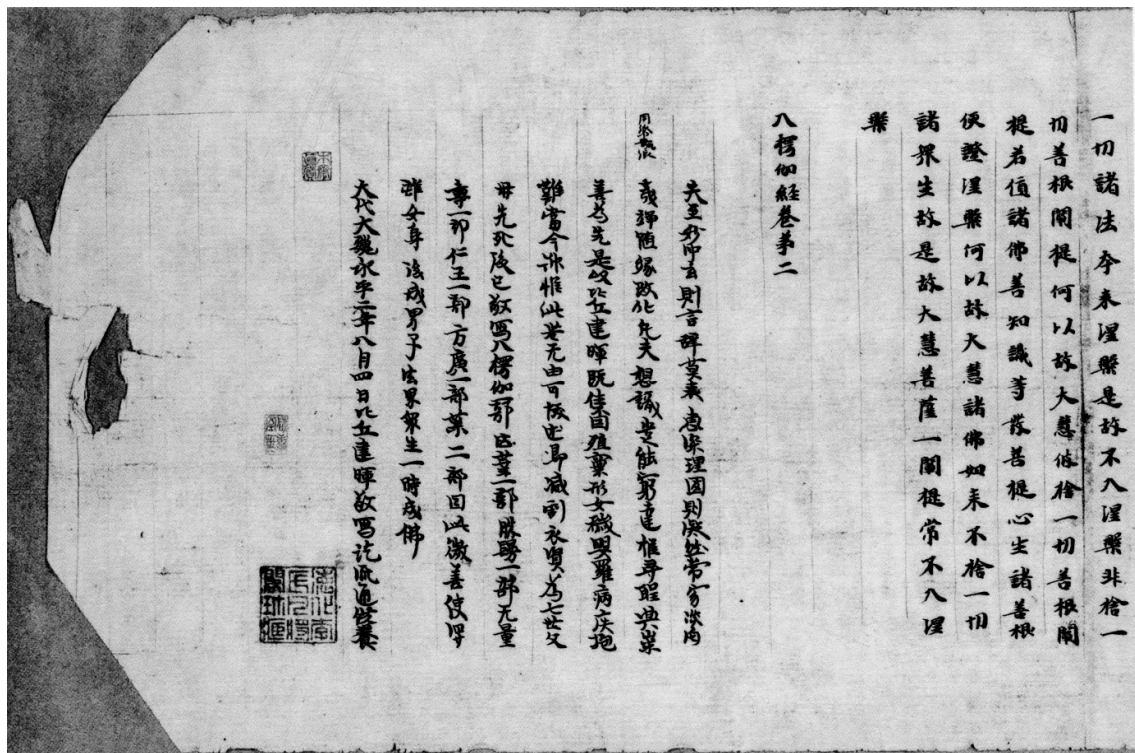 一切諸法本来涅槃是故不入涅槃非捨一
切善根闡提何以故大慧彼捨一切善根闡
提若值諸佛善知識等發菩提心生諸善根
便證涅槃何以故大慧諸佛如来不捨一切
諸衆生故是故大慧菩薩一闡提常不入涅
槃
入楞伽経卷第二
夫至妙冲玄則言辞莫表惠深理固則凝然常寂淡泊
夷殚随緣改化凡夫想識豈能窮達推尋聖典崇
善為先是以比丘建暉既集因殖禀形女穢嬰罹病疾抱
難當今仰惟此苦无由可拔遂即减割衣資為七世父
母先死後亡敬寫入楞伽一部法華一部勝鬘一部无量
壽一部仁王一部方廣一部藥二部因此微善使得
離女身後成男子法界衆生一時成佛
大代大魏永平二年八月四日比丘建暉敬寫訖流通供養